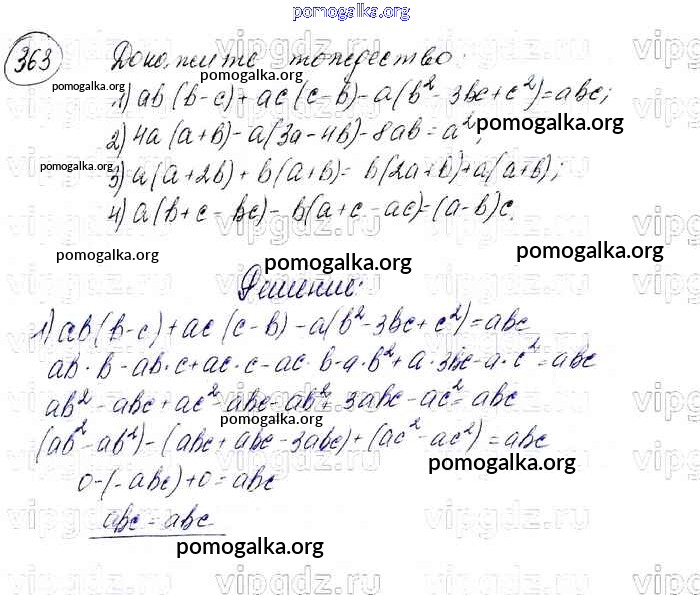 pomogalka.org
363 Докажите тождество:
pomogalka.org
1) ab(b-c)+ac(c-b)-a(b²-3bc+c²)=abc;
pomogalka.org
2) 4a(a+b)-a(3a-4b)-8ab=a²;
pomogalka.org
3) a(a+2b)+b(a+b)=b(2a+b)+a(a+b);
4) a(b+c-bc)-b(a+c-ac)=(a-b)c.
pomogalka.org pomogalka.org pomogalka.org
Решение:
1) ab(b-c)+ac(c-b)-a(b²-3bc+c²)=abc
ab·b-ab·c+ac·c-ac·b-a·b²+a·3bc-a·c²=abc
ab²-abc+ac²-abc-ab²+3abc-ac²=abc
pomogalka.org
(ab²-ab²)-(abc+abc-3abc)+(ac²-ac²)=abc
pomogalka.org
0-(-abc)+0=abc
abc=abc
pomogalka.org
vipgdz.ru